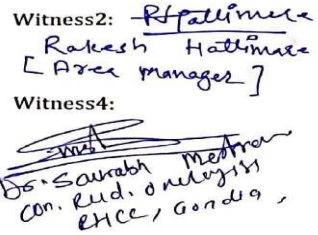 Witness2: RHattimare
Rakesh Hattimare
[Area manager]
Witness4:
Dr. Saurabh
Con. Rad. Oncologist
RHCC, Gondia,